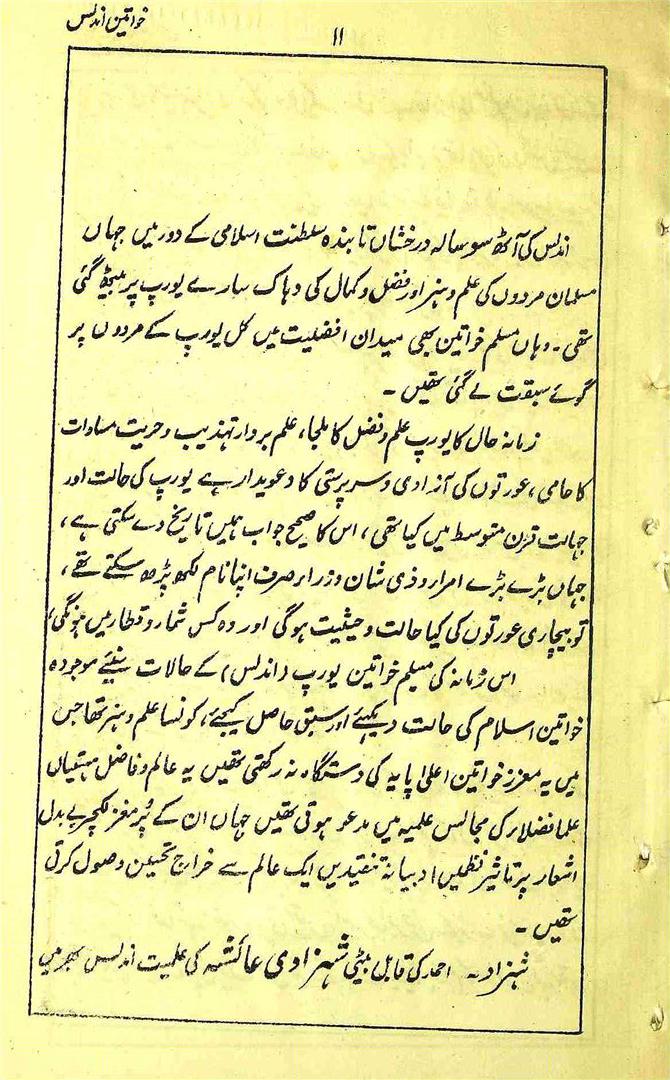 خواتین اندلس
۱۱
اندلس کی آٹھ سو سالہ درخشاں تابندہ سلطنت اسلامی کے دور میں جہاں
مسلمان مردوں کی علم و ہنر اور فضل و کمال کی دہاک سارے یورپ پر بیٹھ گئی
تھی ۔ وہاں مسلم خواتین بھی میدان افضلیت میں کل یورپ کے مردوں پر
گوئے سبقت لے گئی تھیں ۔
زمانہ حال کا یورپ علم و فضل کا ملجا، علم بردار تہذیب و حریت مساوات
کا حامی، عورتوں کی آزادی و سرپرستی کا دعویدار ہے یورپ کی حالت اور
جہالت قرن متوسط میں کیا تھی، اس کا صحیح جواب ہمیں تاریخ دے سکتی ہے،
جہاں بڑے بڑے امرار و ذی شان وزرار صرف اپنا نام لکھ پڑھ سکتے تھے،
تو بیچاری عورتوں کی کیا حالت و حیثیت ہوگی اور وہ کس شمار و قطار میں ہونگی،
اس زمانہ کی مسلم خواتین یورپ (اندلس) کے حالات سنیئے موجودہ
خواتین اسلام کی حالت دیکہئے اور سبق حاصل کیجئے، کونسا علم و ہنر تھا جس
میں یہ معزز خواتین اعلیٰ پایہ کی دستگاہ نہ رکھتی تھیں یہ عالم و فاضل ہستیاں
علما فضلار کی مجالس علمیہ میں مدعو ہوتی تھیں جہاں ان کے پُر مغز لکچر بے بدل
اشعار پر تاثیر نظمیں ادبیانہ تنقیدیں ایک عالم سے خراج تحسین وصول کرتی
تھیں ۔
شہزادہ احمد کی قابل بیٹی شہزادی عائشہ کی علمیت اندلس بھر میں